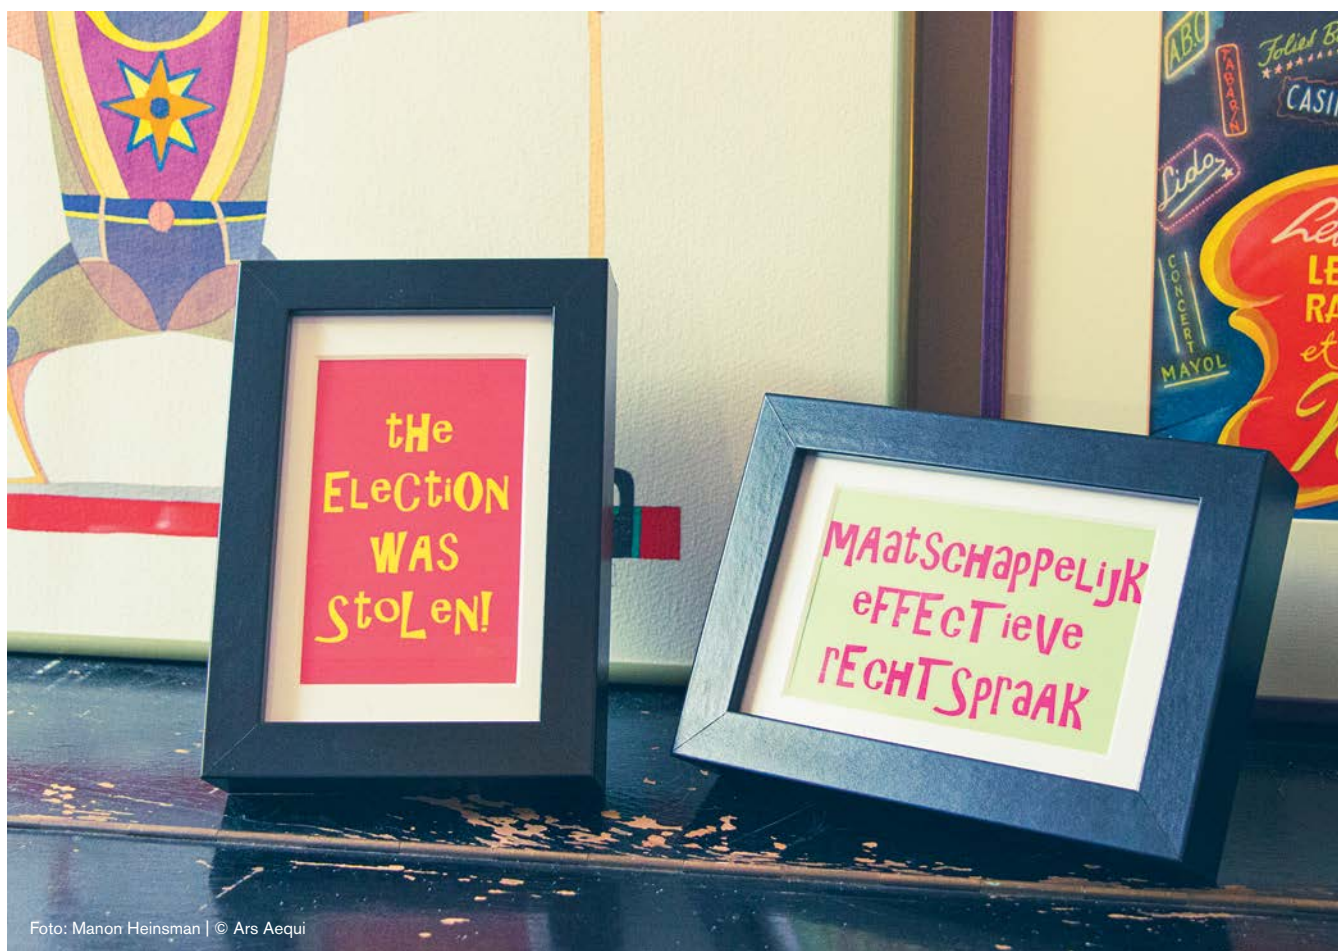 tHe
ELeCtiON
WAS
StoLeN!
MAatSCHappeLijK
eFFECTieVe
rECHTSpraaK
A.B.C
TABARIN
Folies
CASI
Lido
CONCERT
MAYOL
LE
RA
et
Foto: Manon Heinsman | © Ars Aequi